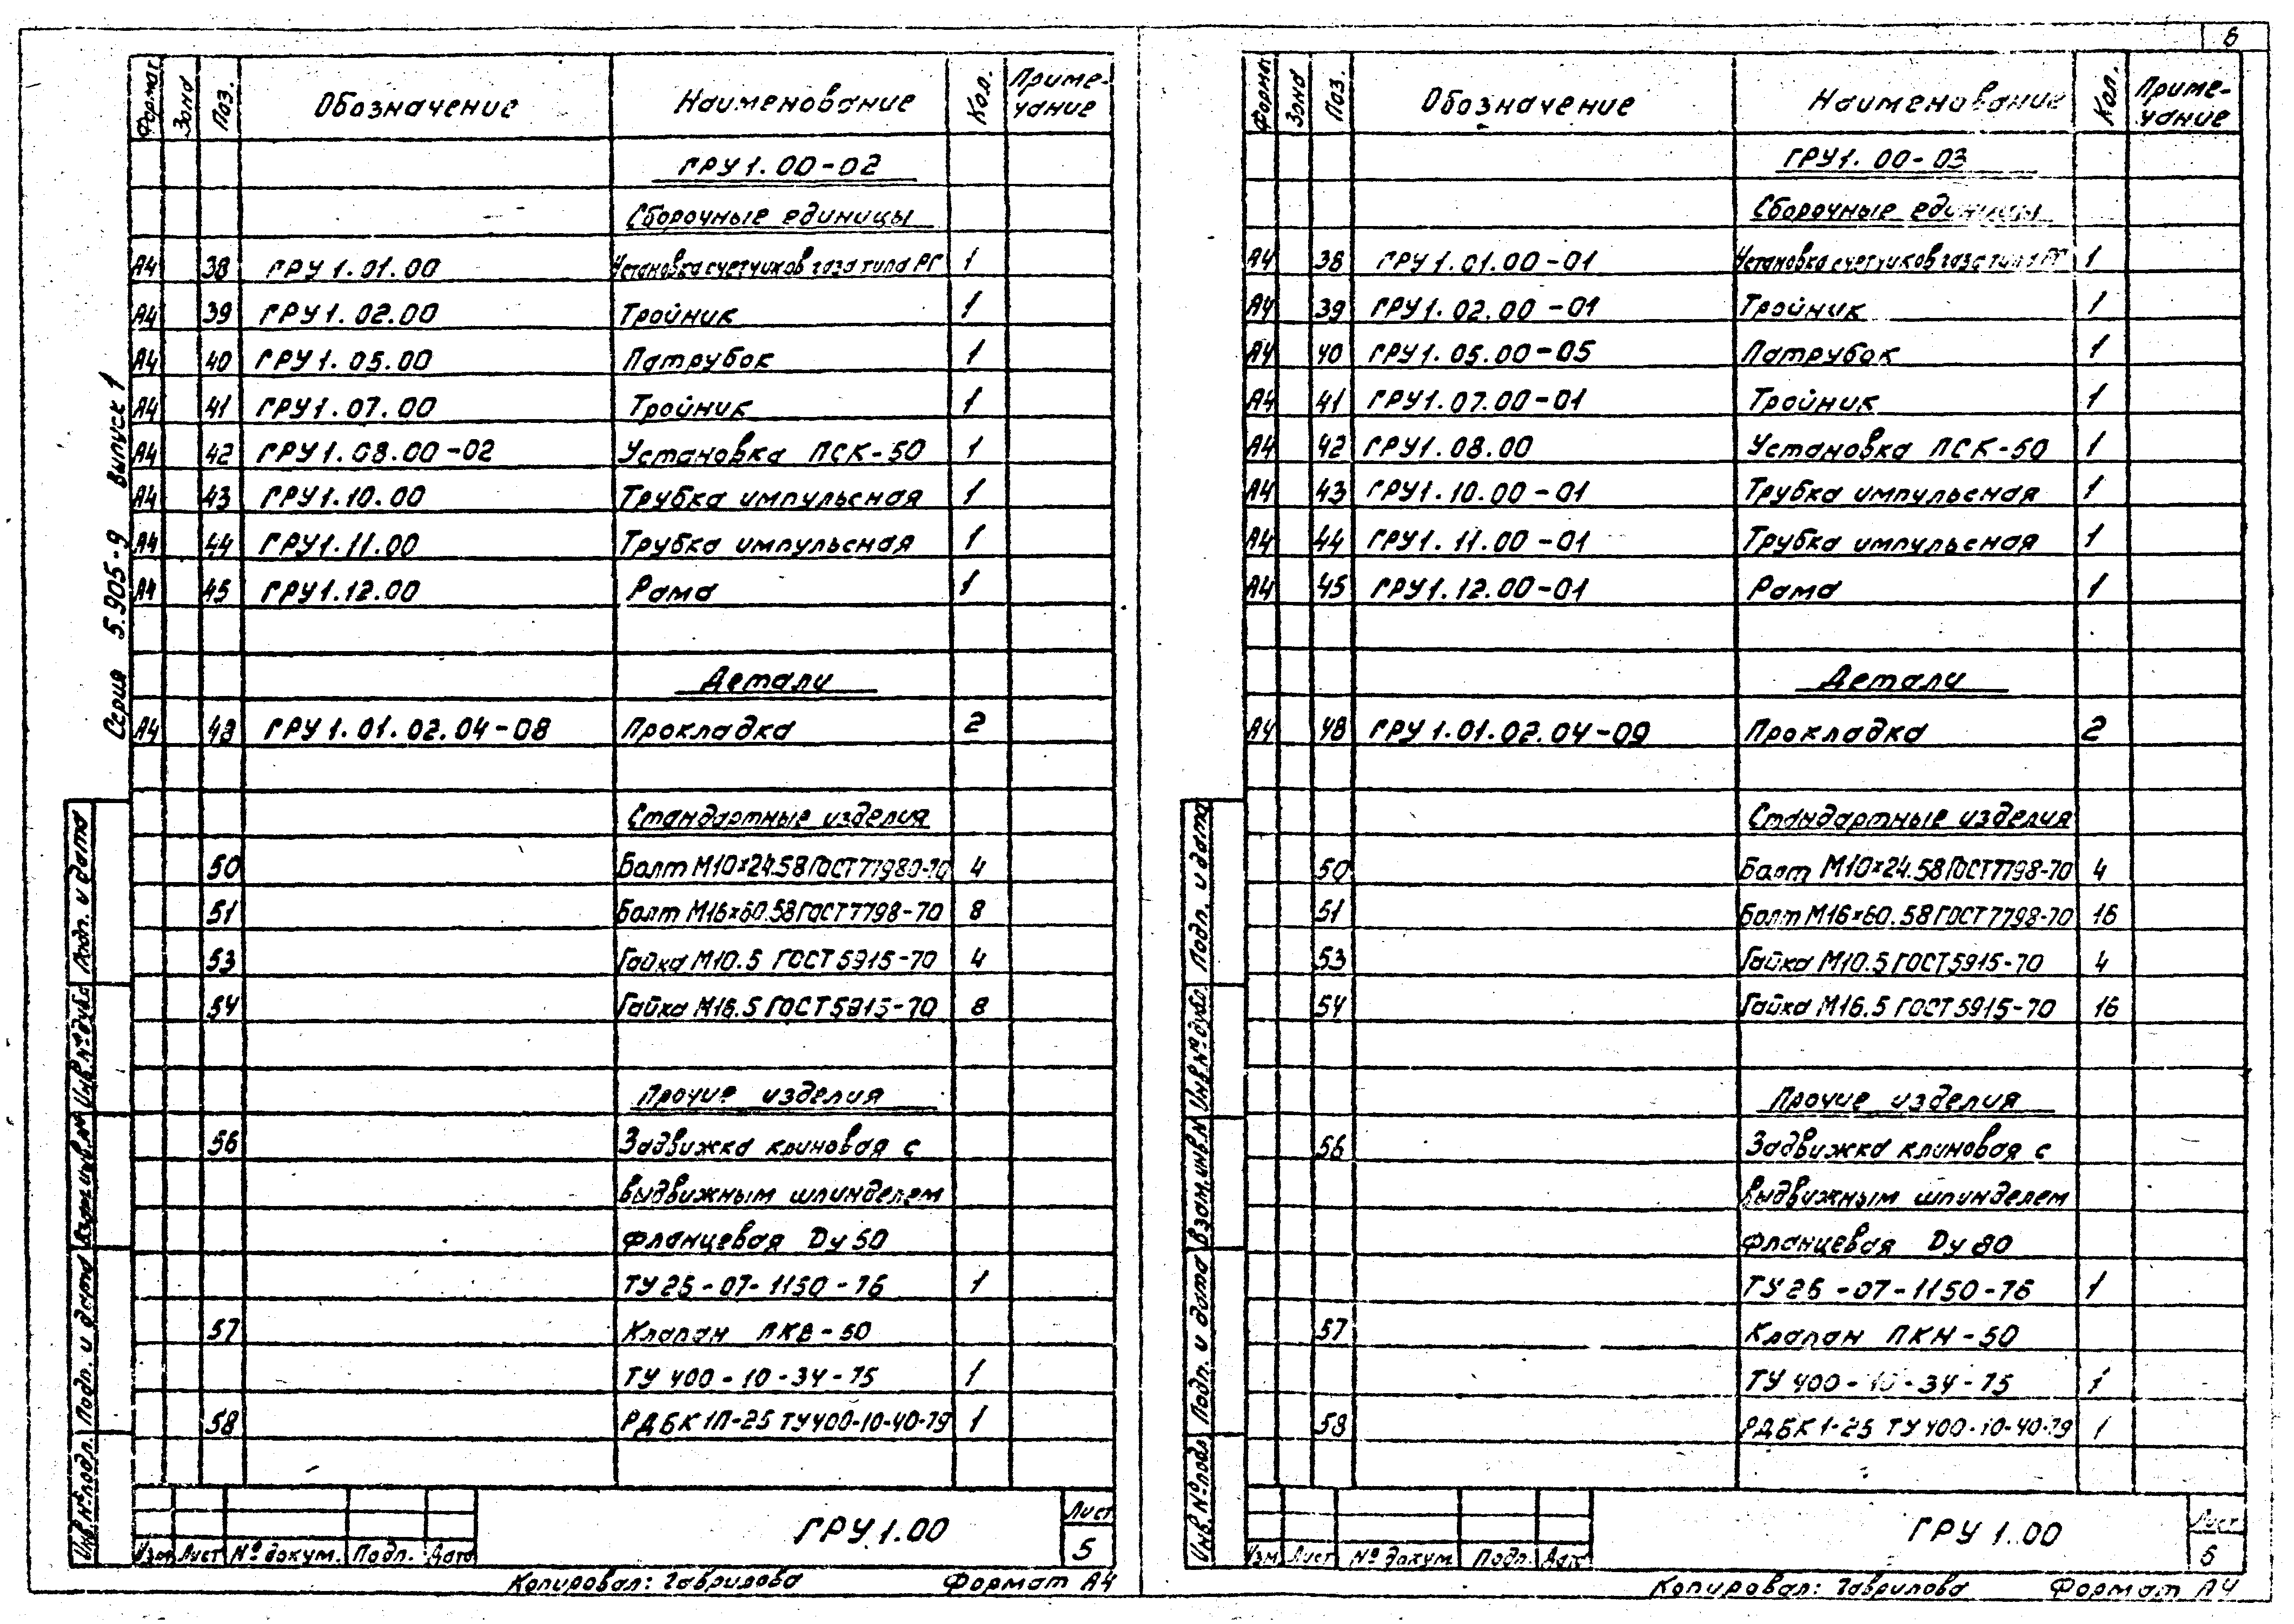 6
Серия 5.905-9 выпуск 1
Формат Зона Поз. Обозначение Наименование Кол. Приме-
чание
ГРУ1.00-02
Сборочные единицы
А4 38 ГРУ1.01.00 Установка счетчиков газа типа РГ 1
А4 39 ГРУ1.02.00 Тройник 1
А4 40 ГРУ1.05.00 Патрубок 1
А4 41 ГРУ1.07.00 Тройник 1
А4 42 ГРУ1.08.00-02 Установка ПСК-50 1
А4 43 ГРУ1.10.00 Трубка импульсная 1
А4 44 ГРУ1.11.00 Трубка импульсная 1
А4 45 ГРУ1.12.00 Рама 1
Детали
А4 48 ГРУ1.01.02.04-08 Прокладка 2
Стандартные изделия
50 Болт М10×24.58 ГОСТ77980-70 4
51 Болт М16×60.58 ГОСТ7798-70 8
53 Гайка М10.5 ГОСТ5915-70 4
54 Гайка М16.5 ГОСТ5915-70 8
Прочие изделия
56 Задвижка клиновая с
выдвижным шпинделем
фланцевая Dу 50
ТУ26-07-1150-76 1
57 Клапан ПКВ-50
ТУ 400-10-34-75 1
58 РДБК1П-25 ТУ400-10-40-79 1
Инв.№подл. Подп. и дата Взам.инв.№ Инв.№дубл. Подп. и дата
Изм Лист №докум. Подп. Дата
ГРУ1.00
Лист
5
Копировал: Гаврилова Формат А4
Формат Зона Поз. Обозначение Наименование Кол. Приме-
чание
ГРУ1.00-03
Сборочные единицы
А4 38 ГРУ1.01.00-01 Установка счетчиков газа типа РГ 1
А4 39 ГРУ1.02.00-01 Тройник 1
А4 40 ГРУ1.05.00-05 Патрубок 1
А4 41 ГРУ1.07.00-01 Тройник 1
А4 42 ГРУ1.08.00 Установка ПСК-50 1
А4 43 ГРУ1.10.00-01 Трубка импульсная 1
А4 44 ГРУ1.11.00-01 Трубка импульсная 1
А4 45 ГРУ1.12.00-01 Рама 1
Детали
А4 48 ГРУ1.01.02.04-09 Прокладка 2
Стандартные изделия
50 Болт М10×24.58 ГОСТ7798-70 4
51 Болт М16×60.58 ГОСТ7798-70 16
53 Гайка М10.5 ГОСТ5915-70 4
54 Гайка М16.5 ГОСТ5915-70 16
Прочие изделия
56 Задвижка клиновая с
выдвижным шпинделем
фланцевая Dу 80
ТУ26-07-1150-76 1
57 Клапан ПКН-50
ТУ 400-10-34-75 1
58 РДБК1-25 ТУ400-10-40-79 1
Инв.№подл. Подп. и дата Взам.инв.№ Инв.№дубл. Подп. и дата
Изм Лист №докум Подп. Дата
ГРУ1.00
Лист
6
Копировал: Гаврилова Формат А4